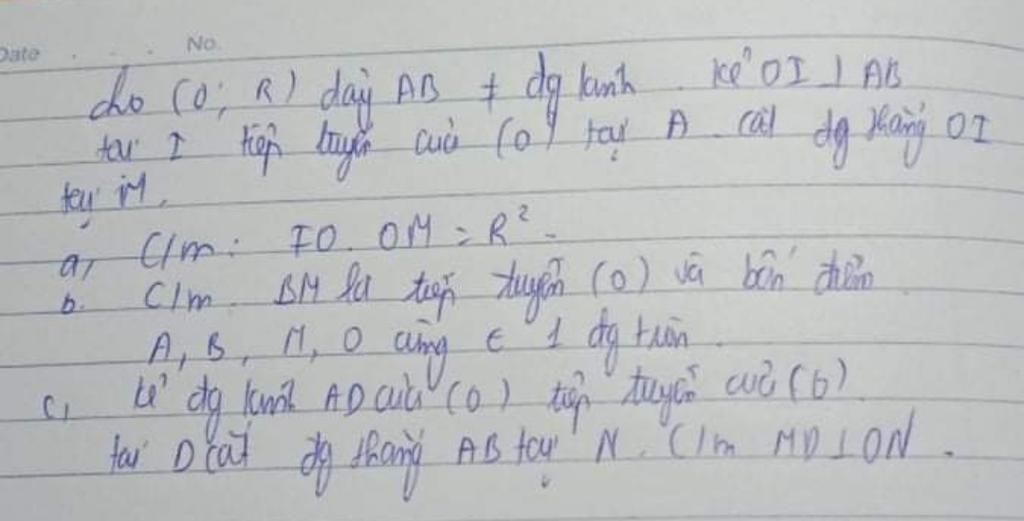 Date . . . No.
cho (O; R) dây AB ≠ đg kính. kẻ OI ⊥ AB
tại I tiếp tuyến của (O) tại A cắt đg thẳng OI
tại M.
a, C/m: IO.OM = R².
b. C/m BM là tiếp tuyến (O) và bốn điểm
A, B, M, O cùng ∈ 1 đg tròn.
c, kẻ đg kính AD của (O) tiếp tuyến của (O)
tại D cắt đg thẳng AB tại N. C/m MD ⊥ ON.